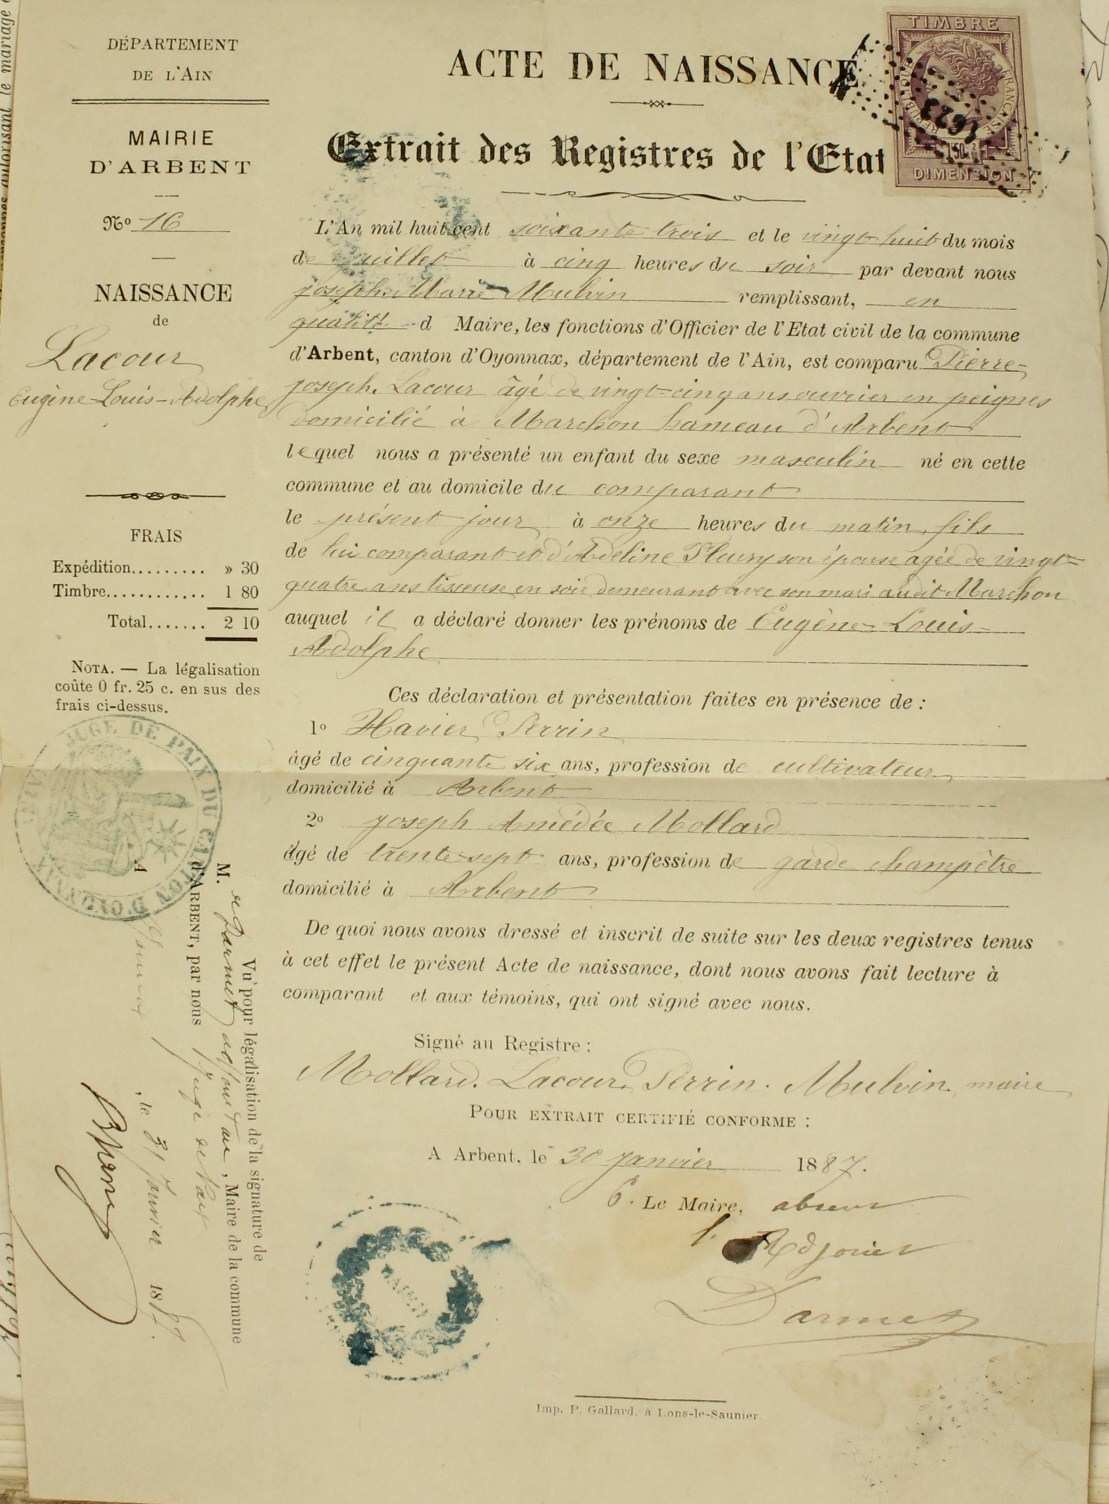 DÉPARTEMENT
DE L'AIN
MAIRIE
D'ARBENT
No 16
NAISSANCE
de
Lacour
Eugène Louis-Adolphe
FRAIS
Expédition......... » 30
Timbre............ 1 80
Total....... 2 10
NOTA. — La légalisation
coûte 0 fr. 25 c. en sus des
frais ci-dessus.
JUGE DE PAIX DU CANTON D'OYONNAX
(AIN)
Vu pour légalisation de la signature de
M. Darmet adjoint au, Maire de la commune
d'ARBENT, par nous juge de Paix
A, le 31 Janvier 1887.
ACTE DE NAISSANCE
TIMBRE
RÉPUBLIQUE FRANÇAISE
1623
DIMENSION
Extrait des Registres de l'Etat
L'An mil huit cent soixante trois et le vingt huit du mois
de juillet à cinq heures du soir par devant nous
joseph Marie Mulvin remplissant, en
qualité d Maire, les fonctions d'Officier de l'Etat civil de la commune
d'Arbent, canton d'Oyonnax, département de l'Ain, est comparu Pierre-
joseph Lacour âgé de vingt-cinq ans ouvrier en peignes
domicilié à Marchon hameau d'Arbent
lequel nous a présenté un enfant du sexe masculin né en cette
commune et au domicile du comparant
le présent jour à onze heures du matin, fils
de lui comparant et d'Adeline Fleury son épouse agée de vingt-
quatre ans tisseuse en soie demeurant avec son mari audit Marchon
auquel il a déclaré donner les prénoms de Eugène-Louis-
Adolphe
Ces déclaration et présentation faites en présence de :
1o Xavier Perrin
âgé de cinquante six ans, profession de cultivateur
domicilié à Arbent
2o joseph Amédée Mollard
âgé de trente-sept ans, profession de garde champêtre
domicilié à Arbent
De quoi nous avons dressé et inscrit de suite sur les deux registres tenus
à cet effet le présent Acte de naissance, dont nous avons fait lecture à
comparant et aux témoins, qui ont signé avec nous.
Signé au Registre :
Mollard. Lacour. Perrin. Mulvin, maire
POUR EXTRAIT CERTIFIÉ CONFORME :
A Arbent, le 30 janvier 1887.
Le Maire, absent
l'Adjoint
Darmet
MAIRIE
Imp. P. Gallard, à Lons-le-Saunier